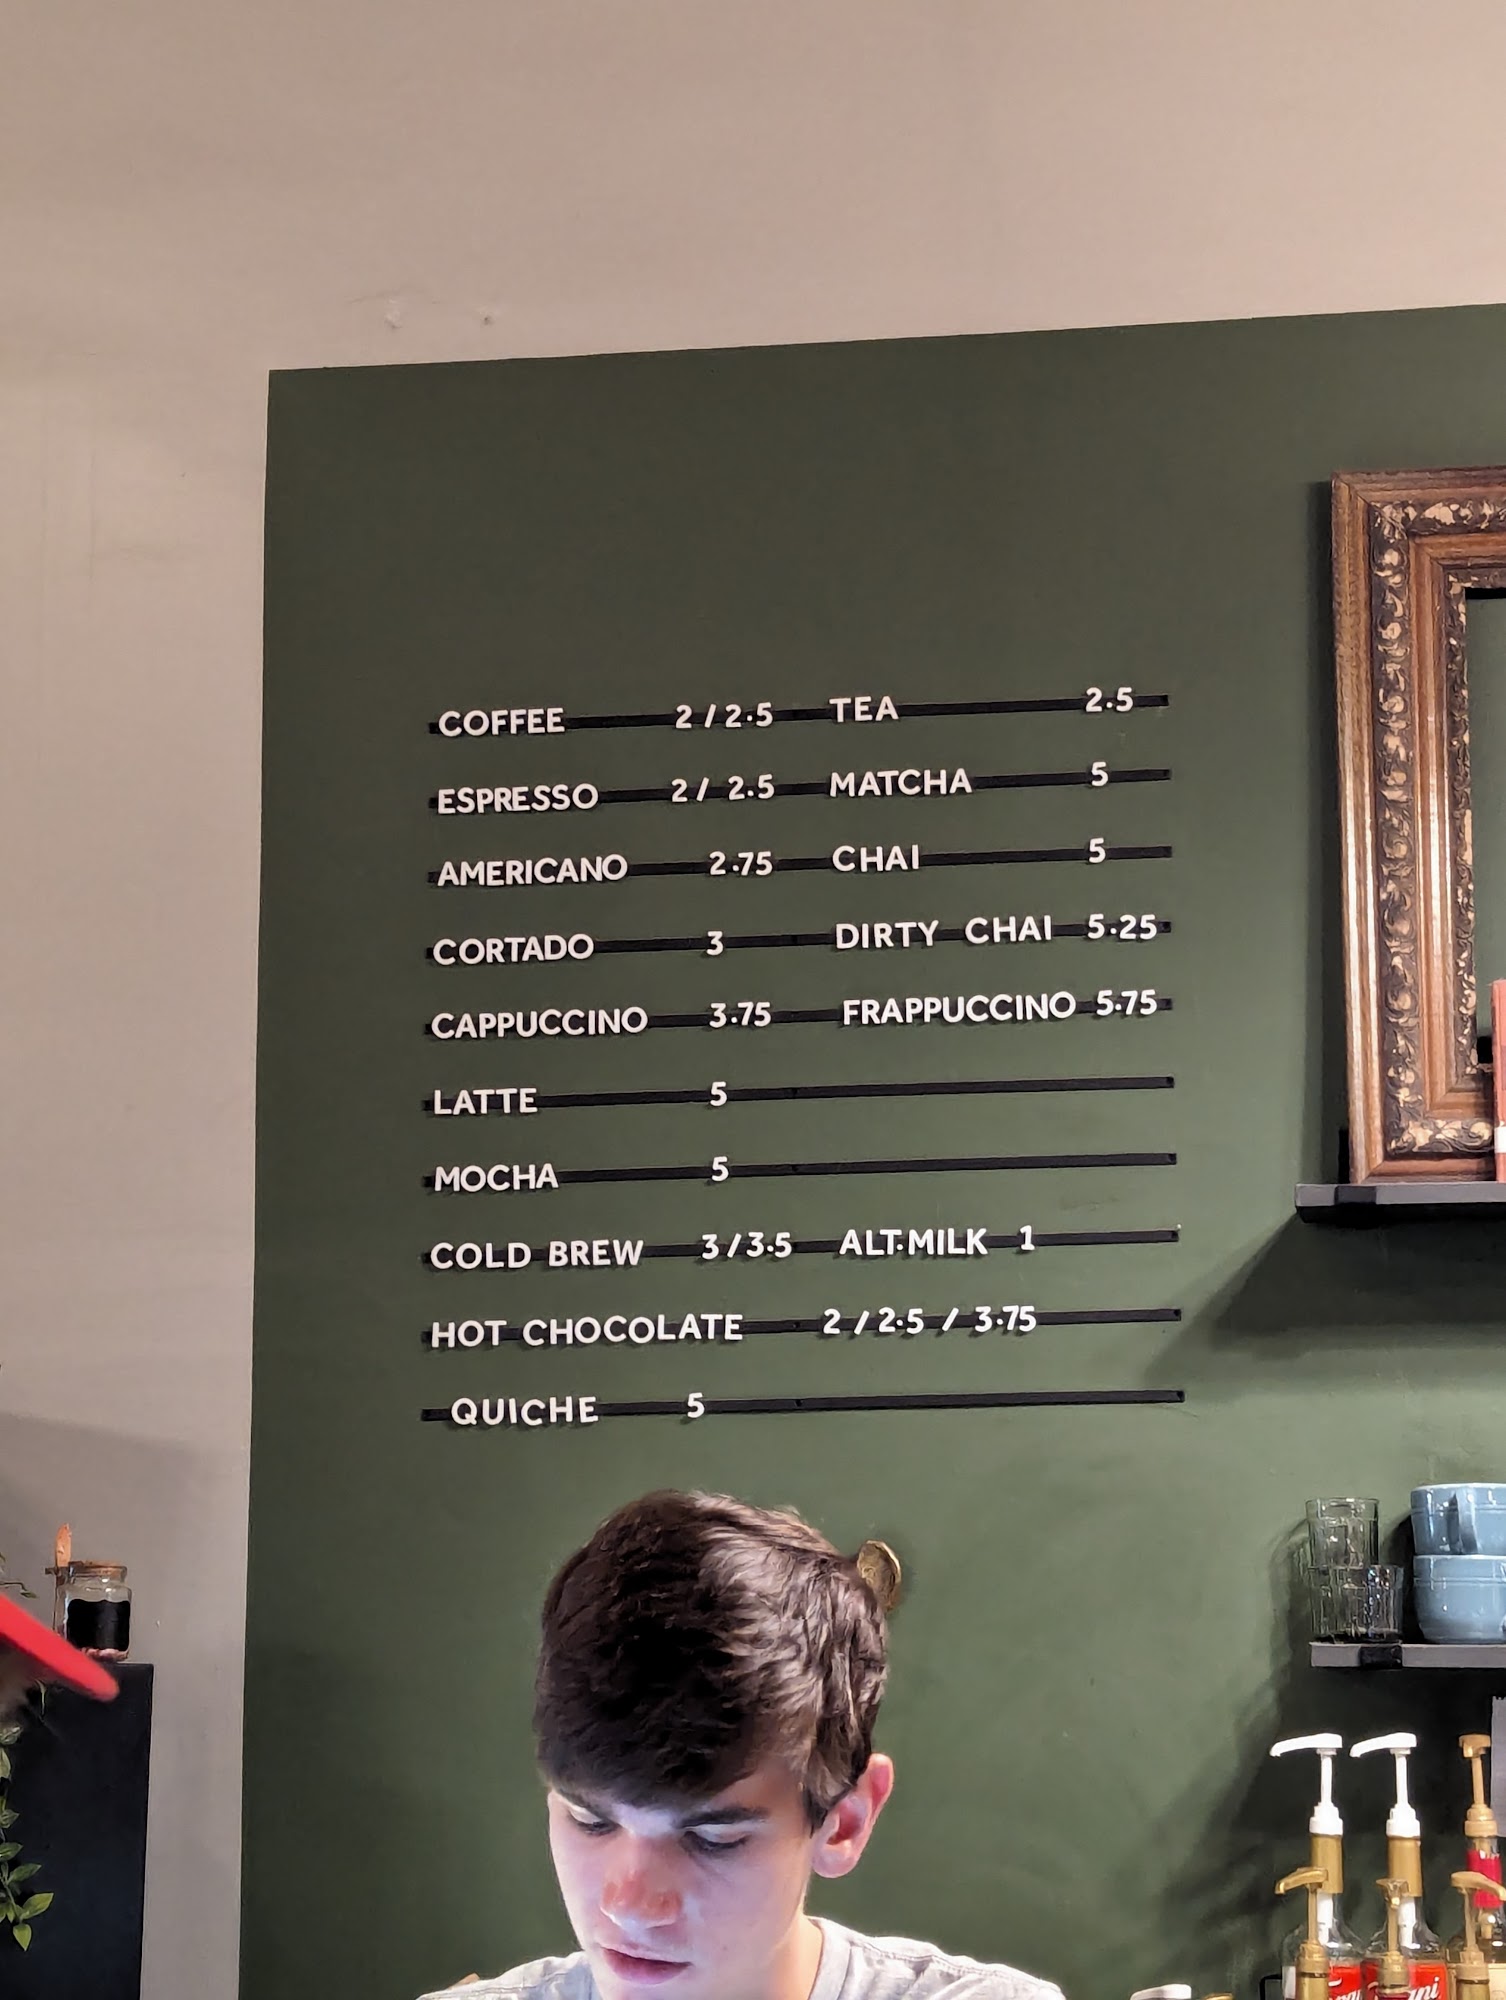 COFFEE 2 / 2.5 TEA 2.5
ESPRESSO 2 / 2.5 MATCHA 5
AMERICANO 2.75 CHAI 5
CORTADO 3 DIRTY CHAI 5.25
CAPPUCCINO 3.75 FRAPPUCCINO 5.75
LATTE 5
MOCHA 5
COLD BREW 3 / 3.5 ALT.MILK 1
HOT CHOCOLATE 2 / 2.5 / 3.75
QUICHE 5